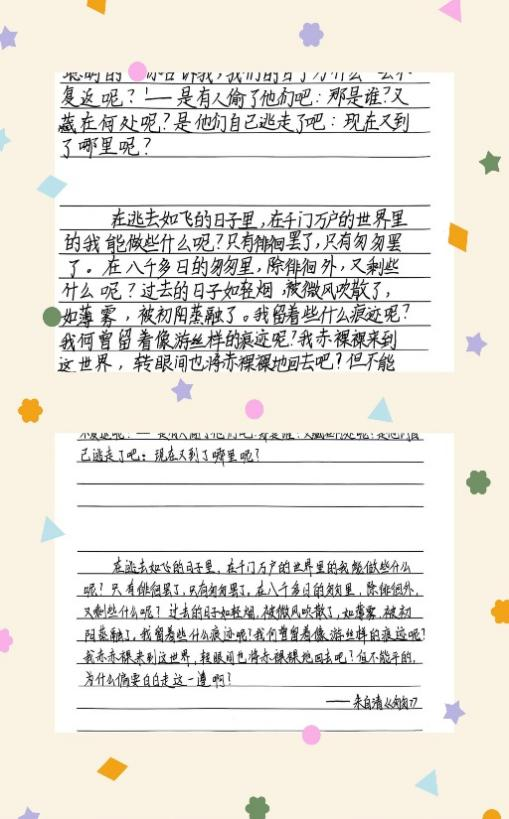 聪明的 你告诉我,我们的日子为什么一去不
复返呢?!——是有人偷了他们吧:那是谁?又
藏在何处呢?是他们自己逃走了吧:现在又到
了哪里呢?
在逃去如飞的日子里,在千门万户的世界里
的我能做些什么呢?只有徘徊罢了,只有匆匆罢
了。在八千多日的匆匆里,除徘徊外,又剩些
什么呢?过去的日子如轻烟,被微风吹散了,
如薄雾,被初阳蒸融了。我留着些什么痕迹呢?
我何曾留着像游丝样的痕迹呢?我赤裸裸来到
这世界,转眼间也将赤裸裸地回去吧?但不能
不复返呢?——是有人偷了他们吧:那是谁?又藏在何处呢?是他们自
己逃走了吧:现在又到了哪里呢?
在逃去如飞的日子里,在千门万户的世界里的我能做些什么
呢?只有徘徊罢了,只有匆匆罢了。在八千多日的匆匆里,除徘徊外,
又剩些什么呢?过去的日子如轻烟,被微风吹散了,如薄雾,被初
阳蒸融了,我留着些什么痕迹呢?我何曾留着像游丝样的痕迹呢?
我赤赤裸来到这世界,转眼间也将赤裸裸地回去吧?但不能平的,
为什么偏要白白走这一遭啊?
——朱自清《匆匆》